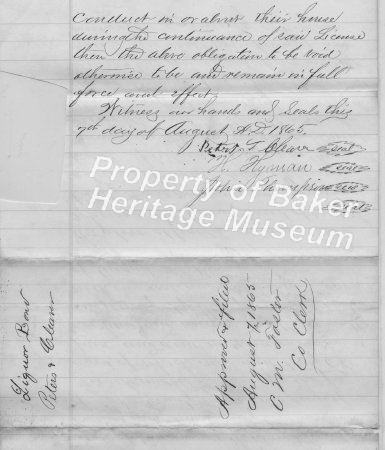 Conduct in or about their house
during the continuance of said License
then the above obligation to be void
otherwise to be and remain in full
force and effect.
Witness our hands and Seals this
7th day of August A.D 1865.
Peters & Cleaver Seal
H. Hyman Seal
John Thompson Seal
Seal
Property of Baker
Heritage Museum
Liquor Bond
Peters & Cleaver
Approved & filed
August 7, 1865
C M. Foster
Co Clerk